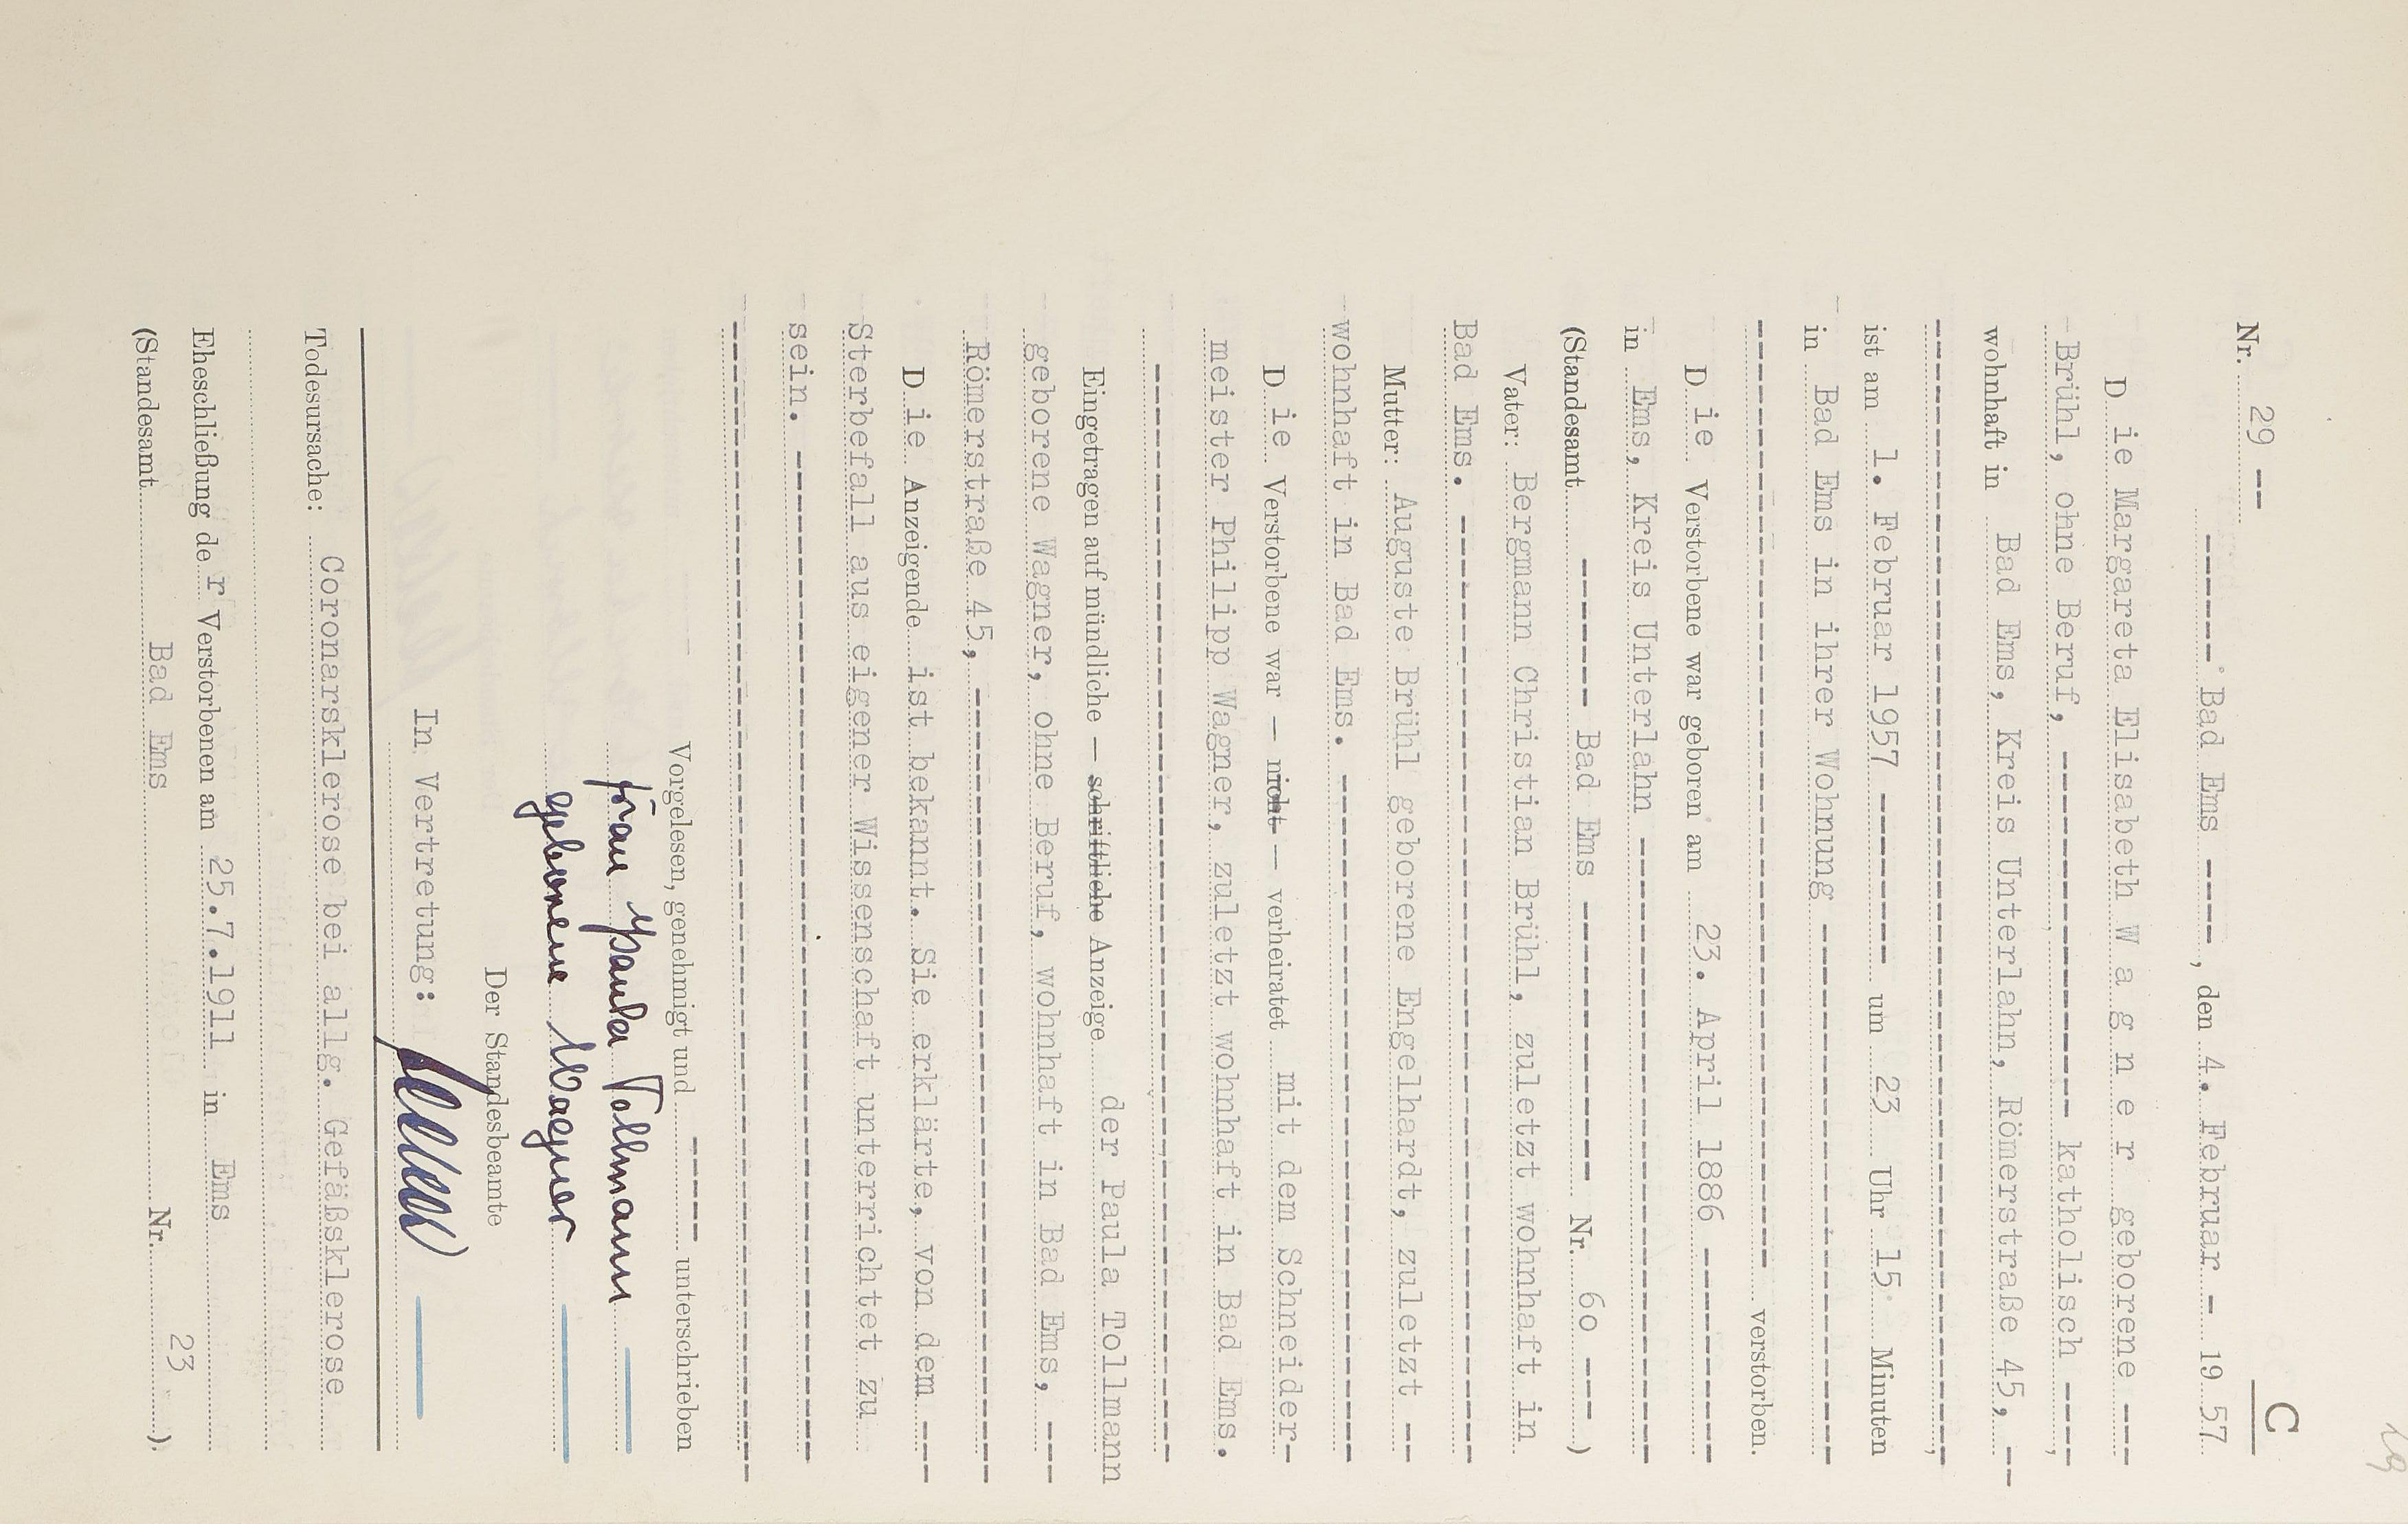 C
Nr. 29 --
------ Bad Ems ----, den 4. Februar - 19 57
Die Margareta Elisabeth W a g n e r geborene ---
Brühl, ohne Beruf, ---------------- katholisch ----,
wohnhaft in Bad Ems, Kreis Unterlahn, Römerstraße 45, --
-----------------------------------------------------,
ist am 1. Februar 1957 -------- um 23 Uhr 15 Minuten
in Bad Ems in ihrer Wohnung -------------------------
--------------------------------------------- verstorben.
Die Verstorbene war geboren am 23. April 1886 ----------
in Ems, Kreis Unterlahn -----------------------------
(Standesamt ------- Bad Ems ------------- Nr. 60 ----)
Vater: Bergmann Christian Brühl, zuletzt wohnhaft in
Bad Ems. --------------------------------------------
Mutter: Auguste Brühl geborene Engelhardt, zuletzt --
wohnhaft in Bad Ems. --------------------------------
Die Verstorbene war — nicht — verheiratet mit dem Schneider-
meister Philipp Wagner, zuletzt wohnhaft in Bad Ems.
----------------------------------------------------
Eingetragen auf mündliche — schriftliche Anzeige der Paula Tollmann
geborene Wagner, ohne Beruf, wohnhaft in Bad Ems, ---
Römerstraße 45, -------------------------------------
Die Anzeigende ist bekannt. Sie erklärte, von dem ---
Sterbefall aus eigener Wissenschaft unterrichtet zu
sein. -----------------------------------------------
-----------------------------------------------------
Vorgelesen, genehmigt und ----- unterschrieben
Frau Paula Tollmann
geborene Wagner
Der Standesbeamte
In Vertretung:
Todesursache: Coronarsklerose bei allg. Gefäßsklerose
Eheschließung der Verstorbenen am 25.7.1911 in Ems
(Standesamt Bad Ems Nr. 23 ).